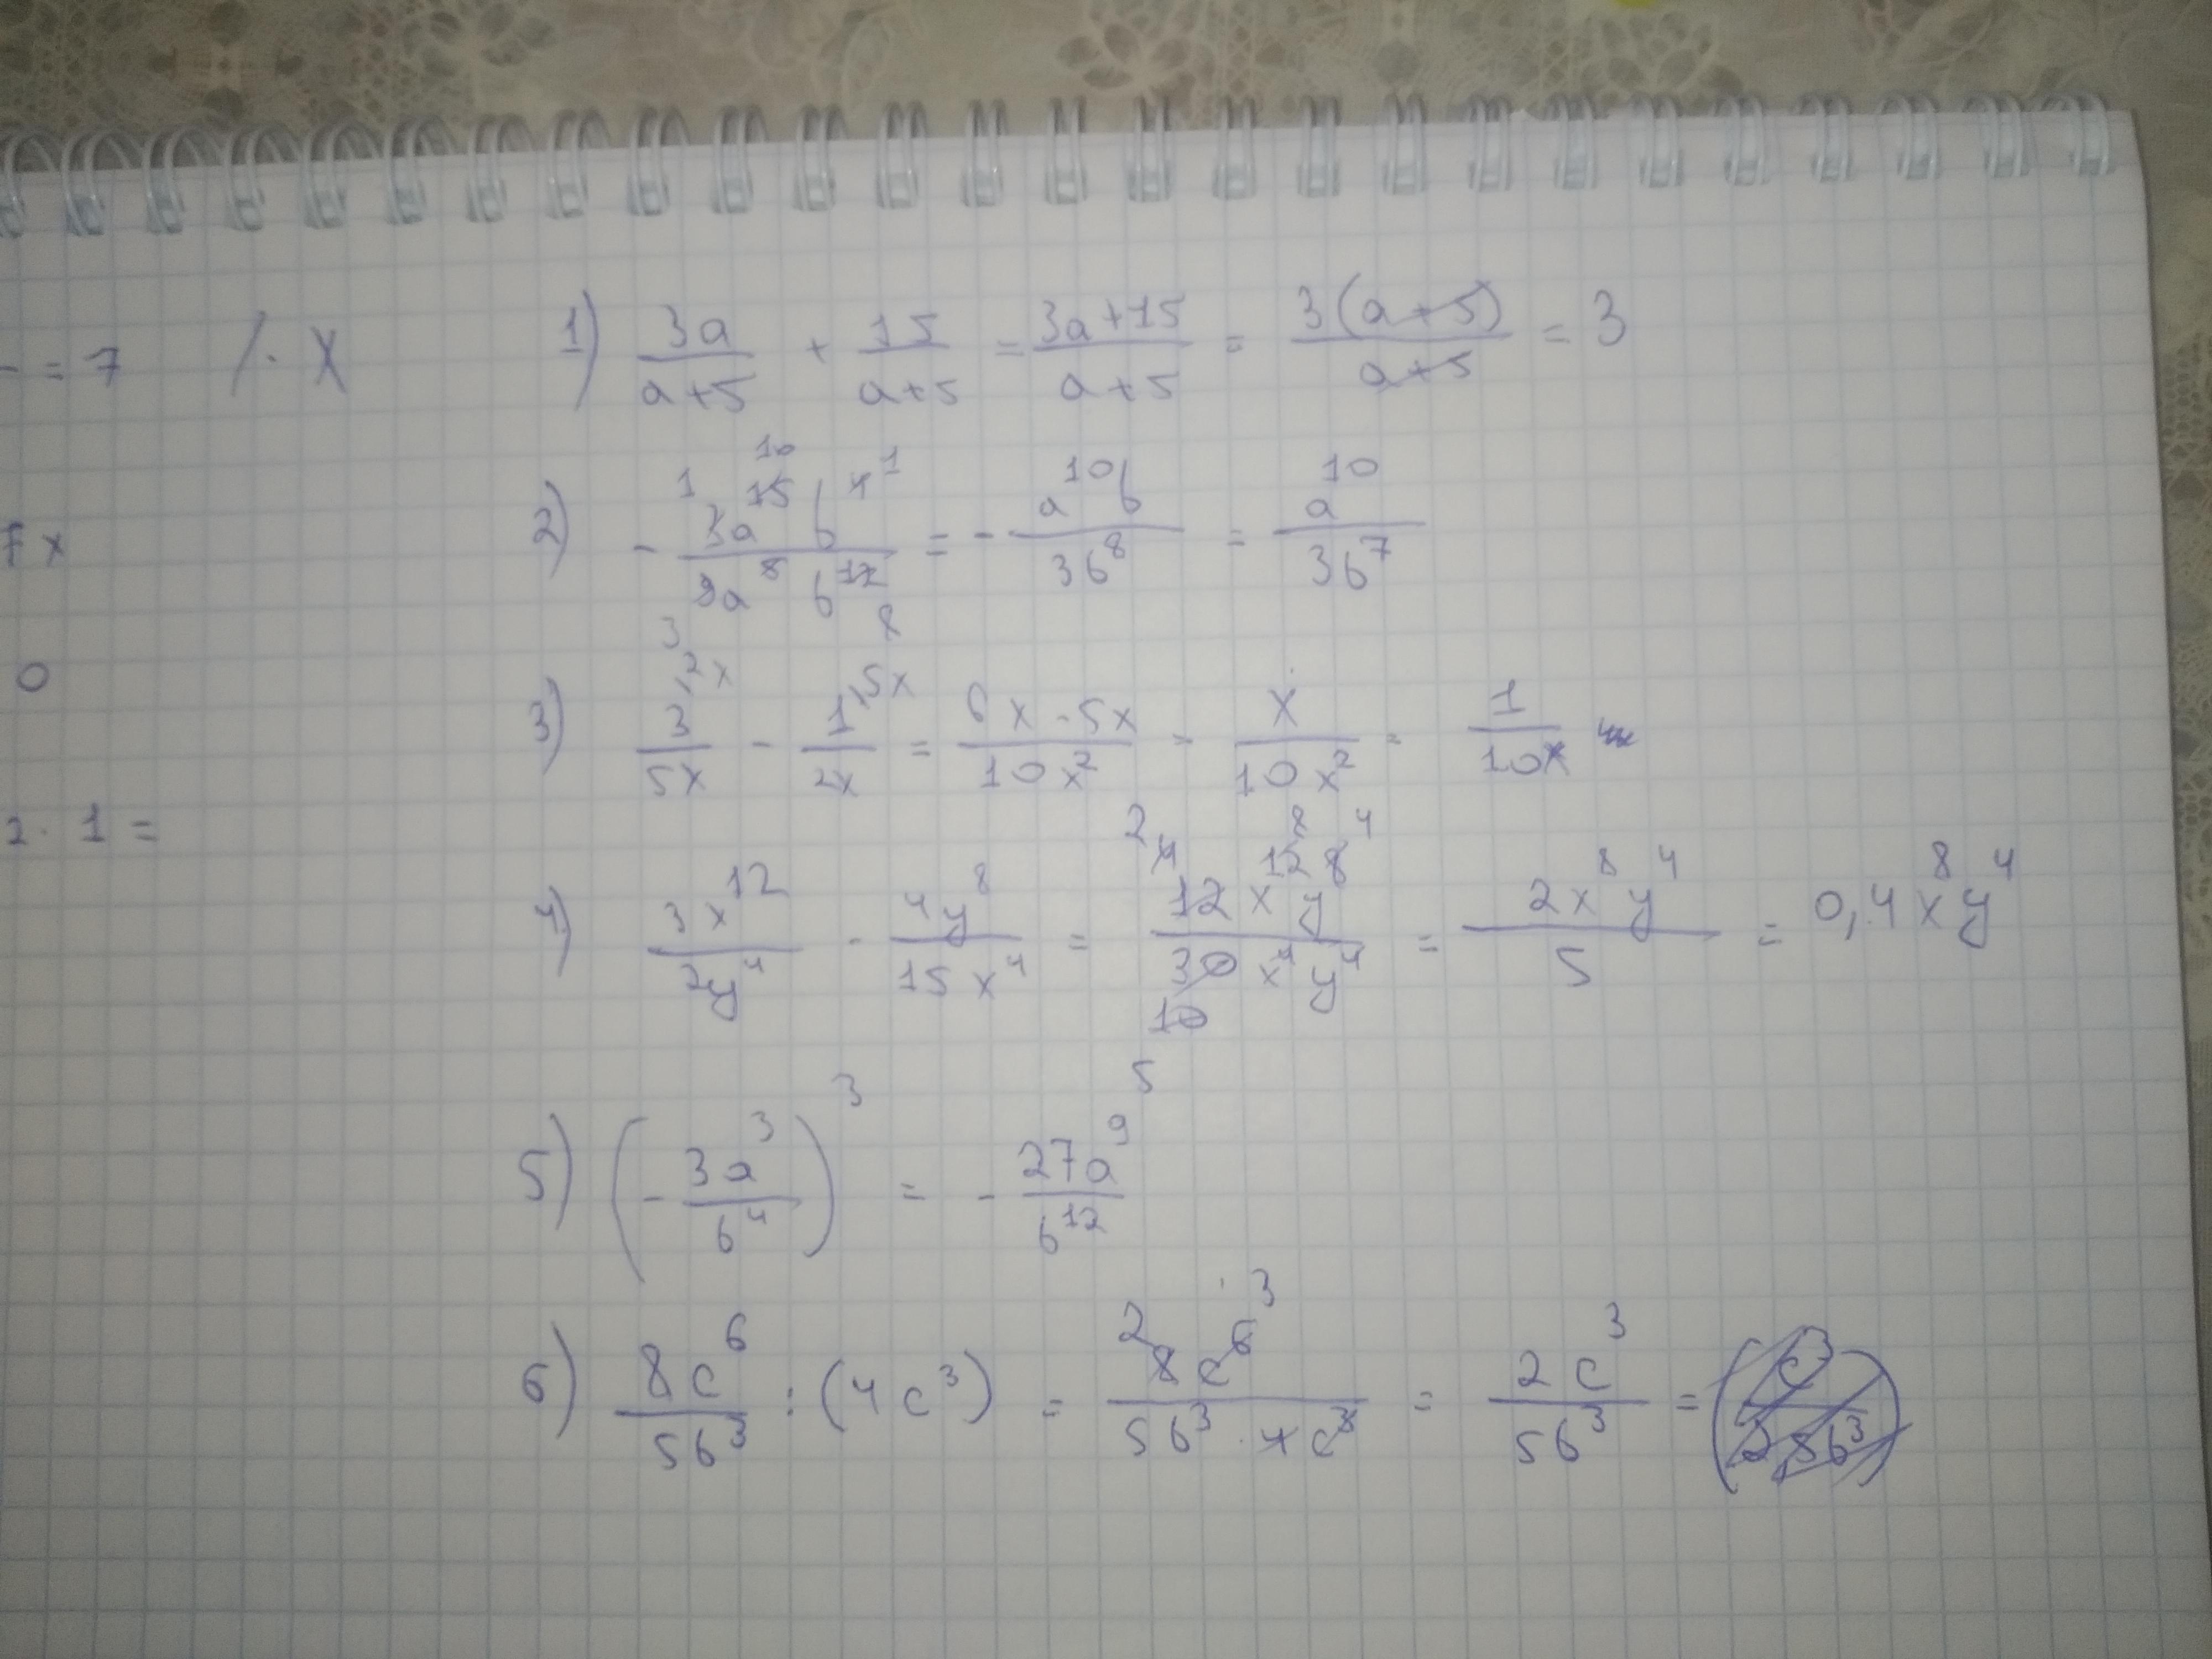 - = 7 / · X
7x
0
2 · 1 =
1) 3a/(a+5) + 15/(a+5) = (3a+15)/(a+5) = 3(a+5)/(a+5) = 3
2) - 3a^15 b^4 / 9a^8 b^12 = - a^10 b / 3b^8 = a^10 / 3b^7
3) 3/5x - 1/2x = (6x - 5x)/10x^2 = x/10x^2 = 1/10x
4) 3x^12/2y^4 · 4y^8/15x^4 = 12x^12 y^8 / 30x^4 y^4 = 2x^8 y^4 / 5 = 0,4x^8 y^4
5) (- 3a^3/b^4)^3 = - 27a^9/b^12
6) 8c^6/5b^3 : (4c^3) = 8c^6 / 5b^3 · 4c^3 = 2c^3/5b^3 =